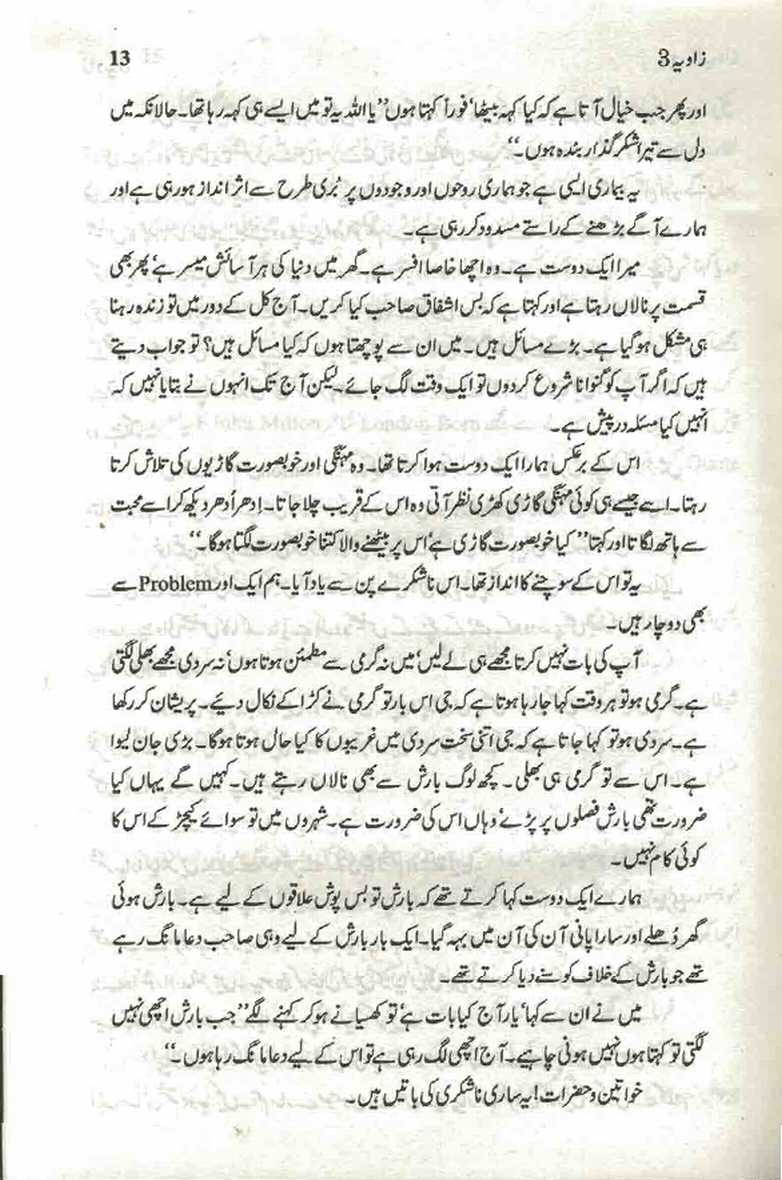 زاویہ 3
13
اور پھر جب خیال آتا ہے کہ کیا کہہ بیٹھا‘ فوراً کہتا ہوں ’’یا اللہ یہ تو میں ایسے ہی کہہ رہا تھا۔ حالانکہ میں
دل سے تیرا شکر گذار بندہ ہوں۔‘‘
یہ بیماری ایسی ہے جو ہماری روحوں اور وجودوں پر بُری طرح سے اثر انداز ہو رہی ہے اور
ہمارے آگے بڑھنے کے راستے مسدود کر رہی ہے۔
میرا ایک دوست ہے۔ وہ اچھا خاصا افسر ہے۔ گھر میں دنیا کی ہر آسائش میسر ہے‘ پھر بھی
قسمت پر نالاں رہتا ہے اور کہتا ہے کہ بس اشفاق صاحب کیا کریں۔ آج کل کے دور میں تو زندہ رہنا
ہی مشکل ہو گیا ہے۔ بڑے مسائل ہیں۔ میں ان سے پوچھتا ہوں کہ کیا مسائل ہیں؟ تو جواب دیتے
ہیں کہ اگر آپ کو گنوانا شروع کر دوں تو ایک وقت لگ جائے۔ لیکن آج تک انہوں نے بتایا نہیں کہ
انہیں کیا مسئلہ درپیش ہے۔
اس کے برعکس ہمارا ایک دوست ہوا کرتا تھا۔ وہ مہنگی اور خوبصورت گاڑیوں کی تلاش کرتا
رہتا۔ اسے جیسے ہی کوئی مہنگی گاڑی کھڑی نظر آتی وہ اس کے قریب چلا جاتا۔ اِدھر اُدھر دیکھ کر اسے محبت
سے ہاتھ لگاتا اور کہتا ’’کیا خوبصورت گاڑی ہے‘ اس پر بیٹھنے والا کتنا خوبصورت لگتا ہوگا۔‘‘
یہ تو اس کے سوچنے کا انداز تھا۔ اس ناشکرے پن سے یاد آیا۔ ہم ایک اور Problem سے
بھی دوچار ہیں۔
آپ کی بات نہیں کرتا مجھے ہی لے لیں‘ میں نہ گرمی سے مطمئن ہوتا ہوں‘ نہ سردی مجھے بھلی لگتی
ہے۔ گرمی ہو تو ہر وقت کہا جا رہا ہوتا ہے کہ جی اس بار تو گرمی نے کڑاکے نکال دیئے۔ پریشان کر رکھا
ہے۔ سردی ہو تو کہا جاتا ہے کہ جی اتنی سخت سردی میں غریبوں کا کیا حال ہوتا ہوگا۔ بڑی جان لیوا
ہے۔ اس سے تو گرمی ہی بھلی۔ کچھ لوگ بارش سے بھی نالاں رہتے ہیں۔ کہیں گے یہاں کیا
ضرورت تھی بارش فصلوں پر پڑے‘ وہاں اس کی ضرورت ہے۔ شہروں میں تو سوائے کیچڑ کے اس کا
کوئی کام نہیں۔
ہمارے ایک دوست کہا کرتے تھے کہ بارش تو بس پوش علاقوں کے لیے ہے۔ بارش ہوئی
گھر دُھلے اور سارا پانی آن کی آن میں بہہ گیا۔ ایک بار بارش کے لیے وہی صاحب دعا مانگ رہے
تھے جو بارش کے خلاف کوسنے دیا کرتے تھے۔
میں نے ان سے کہا‘ یار آج کیا بات ہے‘ تو کھسیانے ہو کر کہنے لگے ’’جب بارش اچھی نہیں
لگتی تو کہتا ہوں نہیں ہونی چاہیے۔ آج اچھی لگ رہی ہے تو اس کے لیے دعا مانگ رہا ہوں۔‘‘
خواتین و حضرات! یہ ساری ناشکری کی باتیں ہیں۔